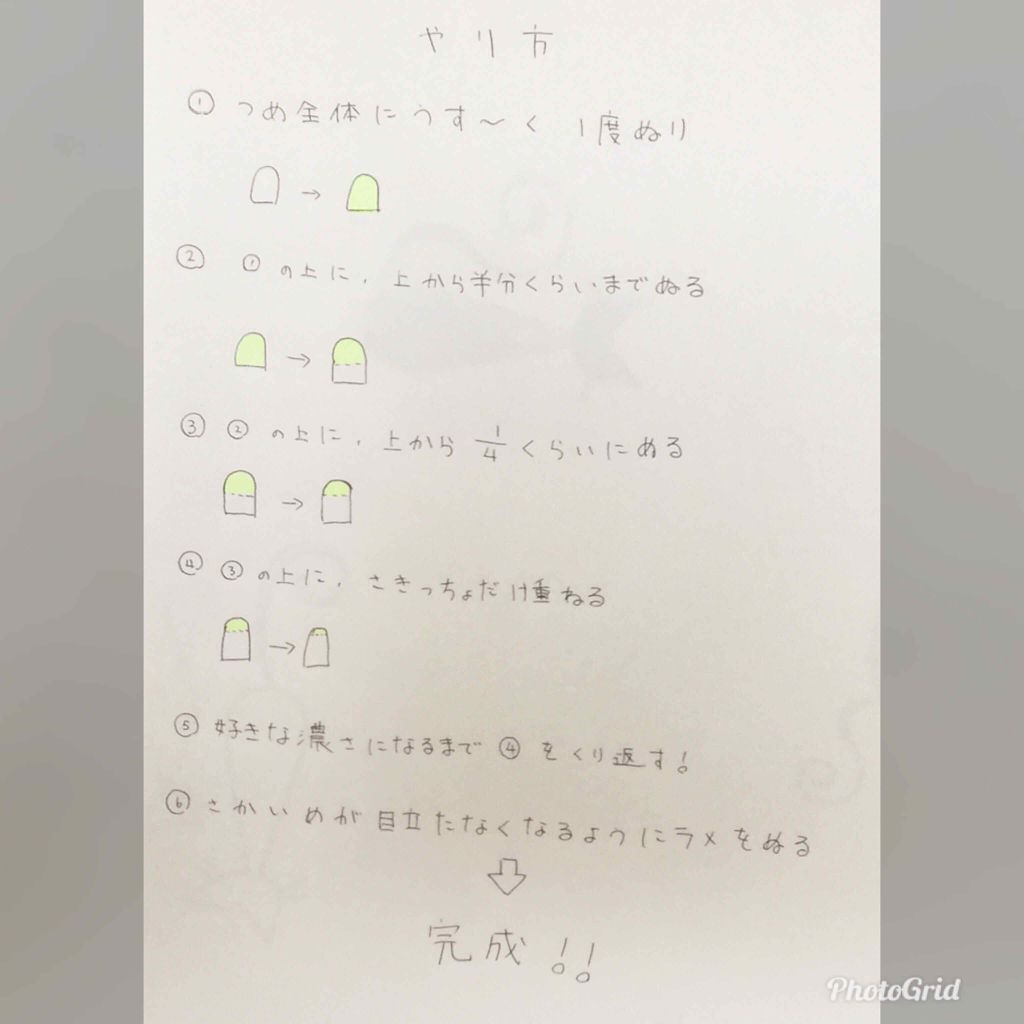 やり方
① つめ全体にうす〜く 1度ぬり
② ①の上に、上から半分くらいまでぬる
③ ②の上に、上から 1/4 くらいにぬる
④ ③の上に、さきっちょだけ重ねる
⑤ 好きな濃さになるまで ④ をくり返す!
⑥ さかいめが目立たなくなるようにラメをぬる
完成!!
PhotoGrid